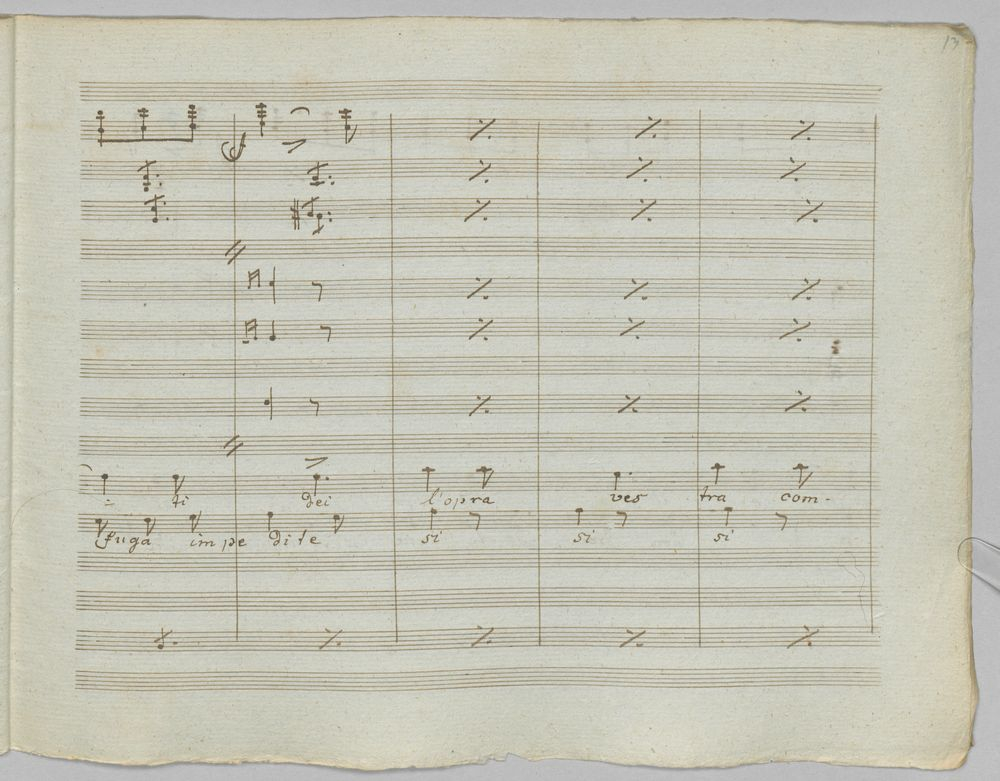 13
ti dei l'opra ves tra com-
fuga im pe di te si si si